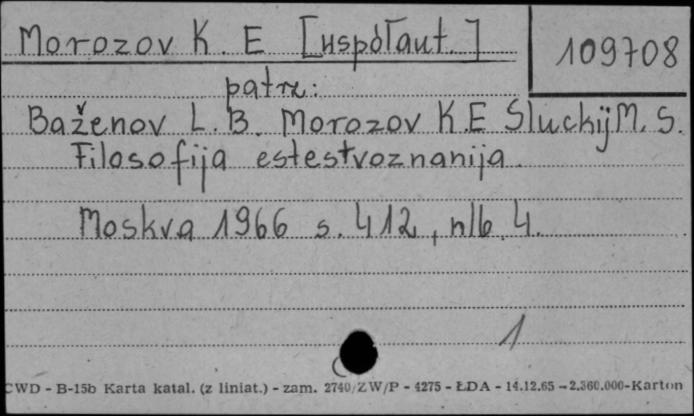 Morozov K. E [współaut.]
109708
patrz:
Baženov L. B. Morozov K.E Sluckij M. S.
Filosofija estestvoznanija.
Moskva 1966 s. 412, nlb 4.
1
CWD - B-15b Karta katal. (z liniat.) - zam. 2740/ZW/P - 4275 - ŁDA - 14.12.65 - 2.360.000-Karton